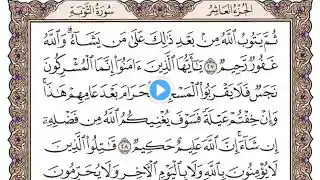 الجزء العاشر
سورة التوبة
ثُمَّ يَتُوبُ ٱللَّهُ مِنۢ بَعْدِ ذَٰلِكَ عَلَىٰ مَن يَشَآءُ ۗ وَٱللَّهُ
غَفُورٌ رَّحِيمٌ ٢٧ يَـٰٓأَيُّهَا ٱلَّذِينَ ءَامَنُوٓا۟ إِنَّمَا ٱلْمُشْرِكُونَ
نَجَسٌ فَلَا يَقْرَبُوا۟ ٱلْمَسْجِدَ ٱلْحَرَامَ بَعْدَ عَامِهِمْ هَـٰذَا ۚ
وَإِنْ خِفْتُمْ عَيْلَةً فَسَوْفَ يُغْنِيكُمُ ٱللَّهُ مِن فَضْلِهِۦٓ
إِن شَآءَ ۚ إِنَّ ٱللَّهَ عَلِيمٌ حَكِيمٌ ٢٨ قَـٰتِلُوا۟ ٱلَّذِينَ
لَا يُؤْمِنُونَ بِٱللَّهِ وَلَا بِٱلْيَوْمِ ٱلْـَٔاخِرِ وَلَا يُحَرِّمُونَ